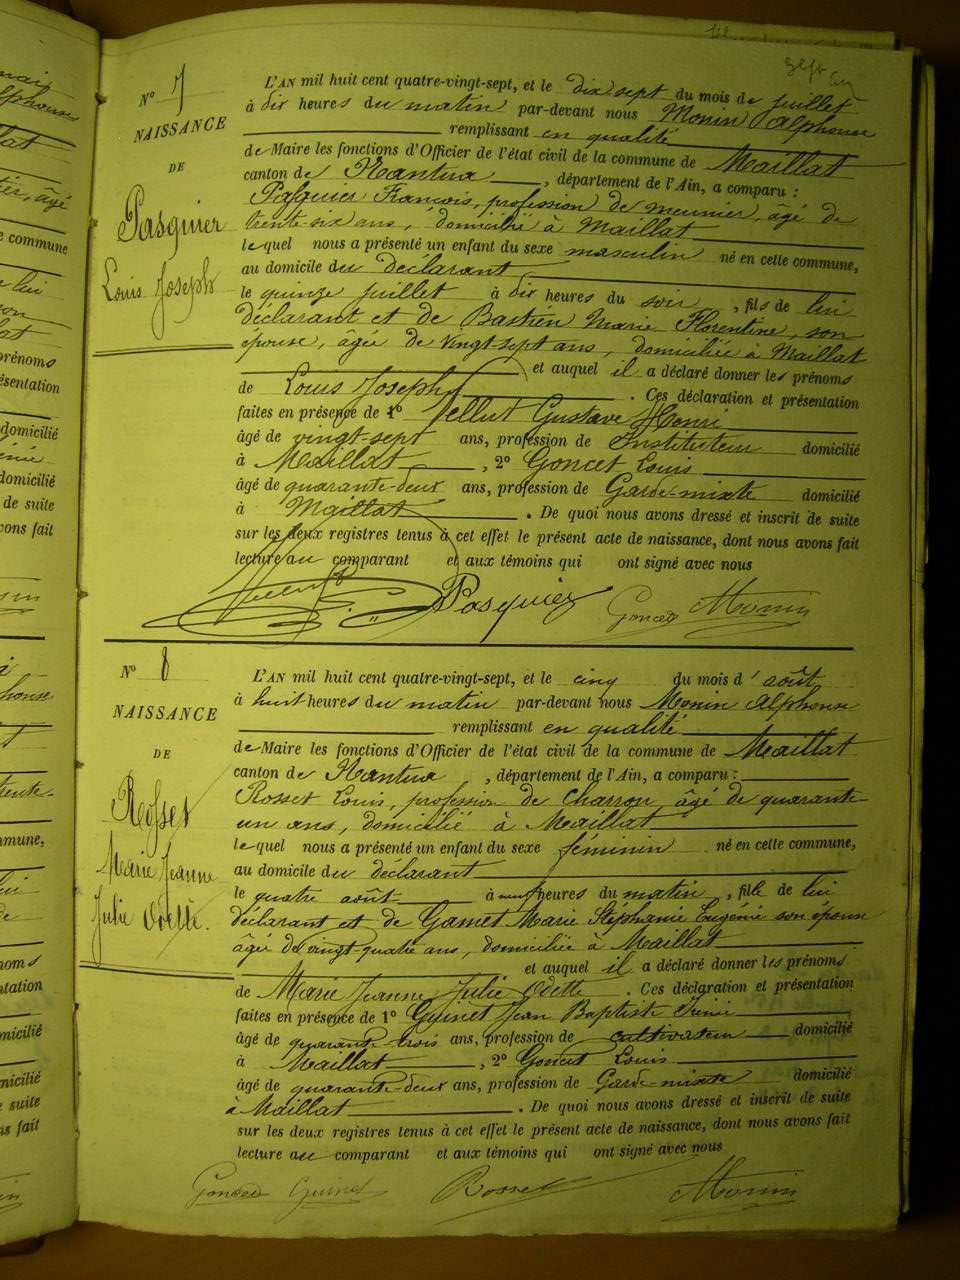 N° 7
NAISSANCE
DE
Pasquier
Louis Joseph
L'AN mil huit cent quatre-vingt-sept, et le dix sept du mois de juillet
à dix heures du matin par-devant nous Monin Alphonse
remplissant en qualité
de Maire les fonctions d'Officier de l'état civil de la commune de Maillat
canton de Nantua, département de l'Ain, a comparu :
Pasquier François, profession de meunier, âgé de
trente-six ans, domicilié à Maillat
lequel nous a présenté un enfant du sexe masculin né en cette commune,
au domicile du déclarant
le quinze juillet à dix heures du soir, fils de lui
déclarant et de Bastien Marie Florentine, son
épouse, âgée de vingt sept ans, domiciliée à Maillat
et auquel il a déclaré donner les prénoms
de Louis Joseph. Ces déclaration et présentation
faites en présence de 1° Vellut Gustave Henri
âgé de vingt-sept ans, profession de Instituteur domicilié
à Maillat, 2° Goncet Louis
âgé de quarante-deux ans, profession de Garde-mixte domicilié
à Maillat. De quoi nous avons dressé et inscrit de suite
sur les deux registres tenus à cet effet le présent acte de naissance, dont nous avons fait
lecture au comparant et aux témoins qui ont signé avec nous
Pasquier Goncet Monin
N° 8
NAISSANCE
DE
Rosset
Marie Jeanne
Julie Odette.
L'AN mil huit cent quatre-vingt-sept, et le cinq du mois d'août
à huit heures du matin par-devant nous Monin Alphonse
remplissant en qualité
de Maire les fonctions d'Officier de l'état civil de la commune de Maillat
canton de Nantua, département de l'Ain, a comparu :
Rosset Louis, profession de Charron, âgé de quarante-
un ans, domicilié à Maillat
lequel nous a présenté un enfant du sexe féminin né en cette commune,
au domicile du déclarant
le quatre août à neuf heures du matin, fille de lui
déclarant et de Gamet Marie Stéphanie Eugénie son épouse
âgée de vingt-quatre ans, domiciliée à Maillat
et auquel il a déclaré donner les prénoms
de Marie Jeanne Julie Odette. Ces déclaration et présentation
faites en présence de 1° Guinet Jean Baptiste
âgé de quarante-trois ans, profession de cultivateur domicilié
à Maillat, 2° Goncet Louis
âgé de quarante-deux ans, profession de Garde-mixte domicilié
à Maillat. De quoi nous avons dressé et inscrit de suite
sur les deux registres tenus à cet effet le présent acte de naissance, dont nous avons fait
lecture au comparant et aux témoins qui ont signé avec nous
Goncet Guinet Rosset Monin